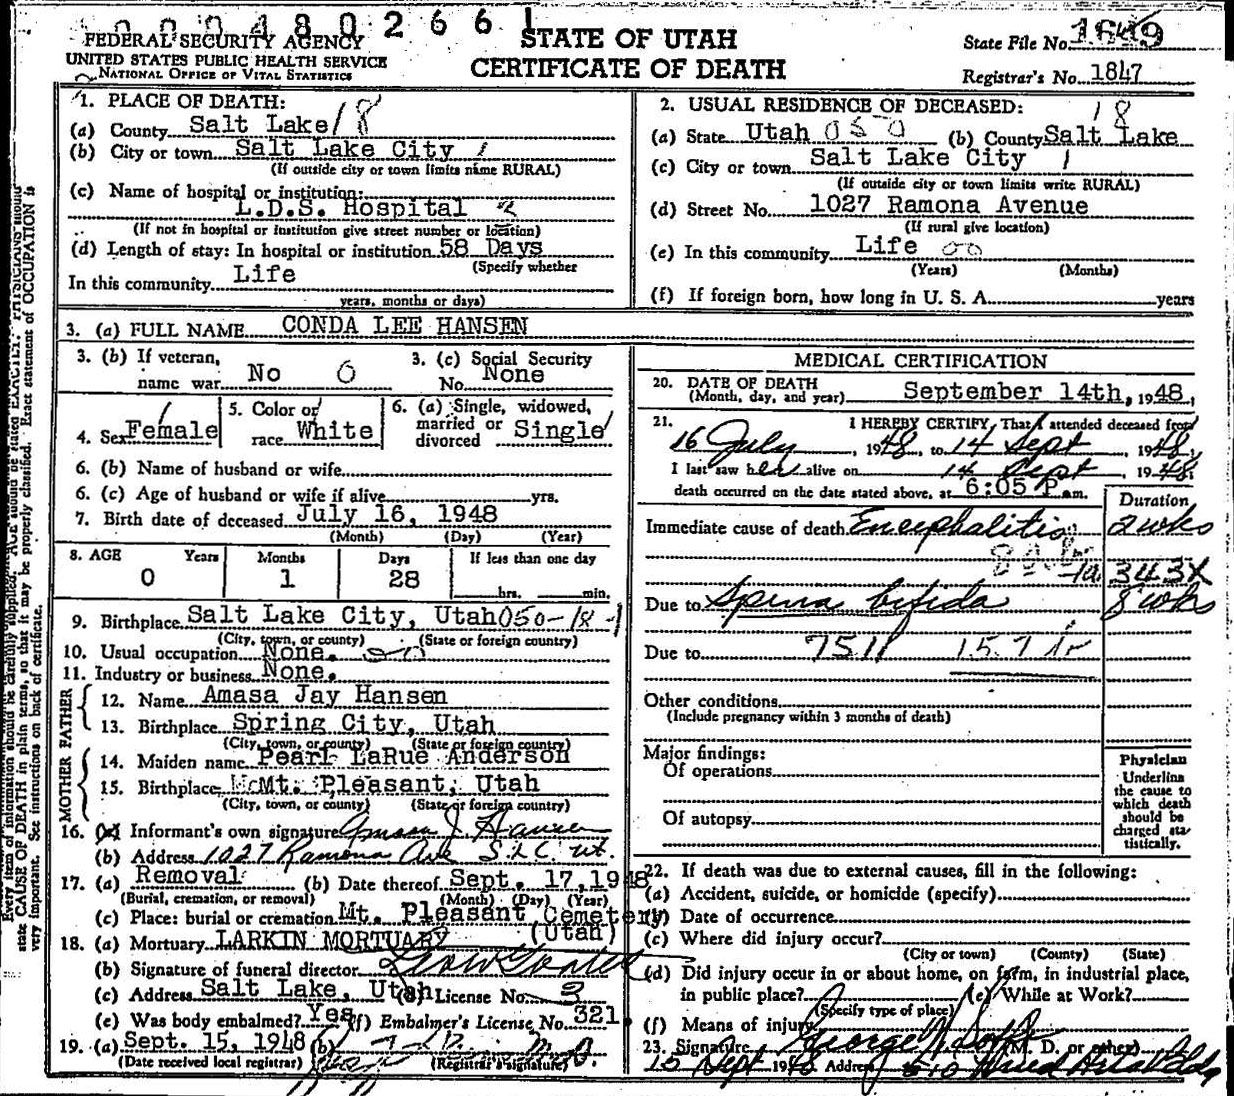 0004802661
FEDERAL SECURITY AGENCY
UNITED STATES PUBLIC HEALTH SERVICE
NATIONAL OFFICE OF VITAL STATISTICS
STATE OF UTAH
CERTIFICATE OF DEATH
State File No. 1649
Registrar's No. 1847
1. PLACE OF DEATH:
(a) County Salt Lake/ 8
(b) City or town Salt Lake City 1
(If outside city or town limits name RURAL)
(c) Name of hospital or institution:
L.D.S. Hospital 2
(If not in hospital or institution give street number or location)
(d) Length of stay: In hospital or institution 58 Days
(Specify whether
In this community Life
years, months or days)
2. USUAL RESIDENCE OF DECEASED: 18
(a) State Utah 050 (b) County Salt Lake
(c) City or town Salt Lake City 1
(If outside city or town limits write RURAL)
(d) Street No. 1027 Ramona Avenue
(If rural give location)
(e) In this community Life 00
(Years) (Months)
(f) If foreign born, how long in U. S. A. years
3. (a) FULL NAME CONDA LEE HANSEN
3. (b) If veteran,
name war No 0
3. (c) Social Security
No. None
4. Sex Female
5. Color or
race White
6. (a) Single, widowed,
married or
divorced Single
6. (b) Name of husband or wife
6. (c) Age of husband or wife if alive yrs.
7. Birth date of deceased July 16, 1948
(Month) (Day) (Year)
8. AGE Years Months Days If less than one day
0 1 28 hrs. min.
9. Birthplace Salt Lake City, Utah 050-18-1
(City, town, or county) (State or foreign country)
10. Usual occupation None.
11. Industry or business None.
FATHER
12. Name Amasa Jay Hansen
13. Birthplace Spring City, Utah
(City, town, or county) (State or foreign country)
MOTHER
14. Maiden name Pearl LaRue Anderson
15. Birthplace Mt. Pleasant, Utah
(City, town, or county) (State or foreign country)
16. (a) Informant's own signature Amasa J. Hansen
(b) Address 1027 Ramona Ave S.L.C. Ut.
17. (a) Removal (b) Date thereof Sept. 17, 1948
(Burial, cremation, or removal) (Month) (Day) (Year)
(c) Place: burial or cremation Mt. Pleasant Cemetery
(Utah)
18. (a) Mortuary LARKIN MORTUARY
(b) Signature of funeral director
(c) Address Salt Lake, Utah (d) License No. 3
(e) Was body embalmed? Yes (f) Embalmer's License No. 321
19. (a) Sept. 15, 1948 (b) M.D.
(Date received local registrar) (Registrar's signature)
MEDICAL CERTIFICATION
20. DATE OF DEATH
(Month, day, and year) September 14th, 1948.
21. I HEREBY CERTIFY, That I attended deceased from
16 July, 1948, to 14 Sept, 1948,
I last saw her alive on 14 Sept 1948,
death occurred on the date stated above, at 6:05 P m.
Duration
Immediate cause of death Encephalitis 2 wks
343X
Due to Spina bifida 8 wks
Due to 7511 157
Other conditions
(Include pregnancy within 3 months of death)
Major findings:
Of operations
Of autopsy
Physician
Underline
the cause to
which death
should be
charged sta-
tistically.
22. If death was due to external causes, fill in the following:
(a) Accident, suicide, or homicide (specify)
(b) Date of occurrence
(c) Where did injury occur?
(City or town) (County) (State)
(d) Did injury occur in or about home, on farm, in industrial place,
in public place? (e) While at Work?
(Specify type of place)
(f) Means of injury
23. Signature George (M. D. or other)
15 Sept 1948 Address 510
Every item of information should be carefully supplied. AGE should be stated EXACTLY. PHYSICIANS should
state CAUSE OF DEATH in plain terms, so that it may be properly classified. Exact statement of OCCUPATION is
very important. See instructions on back of certificate.